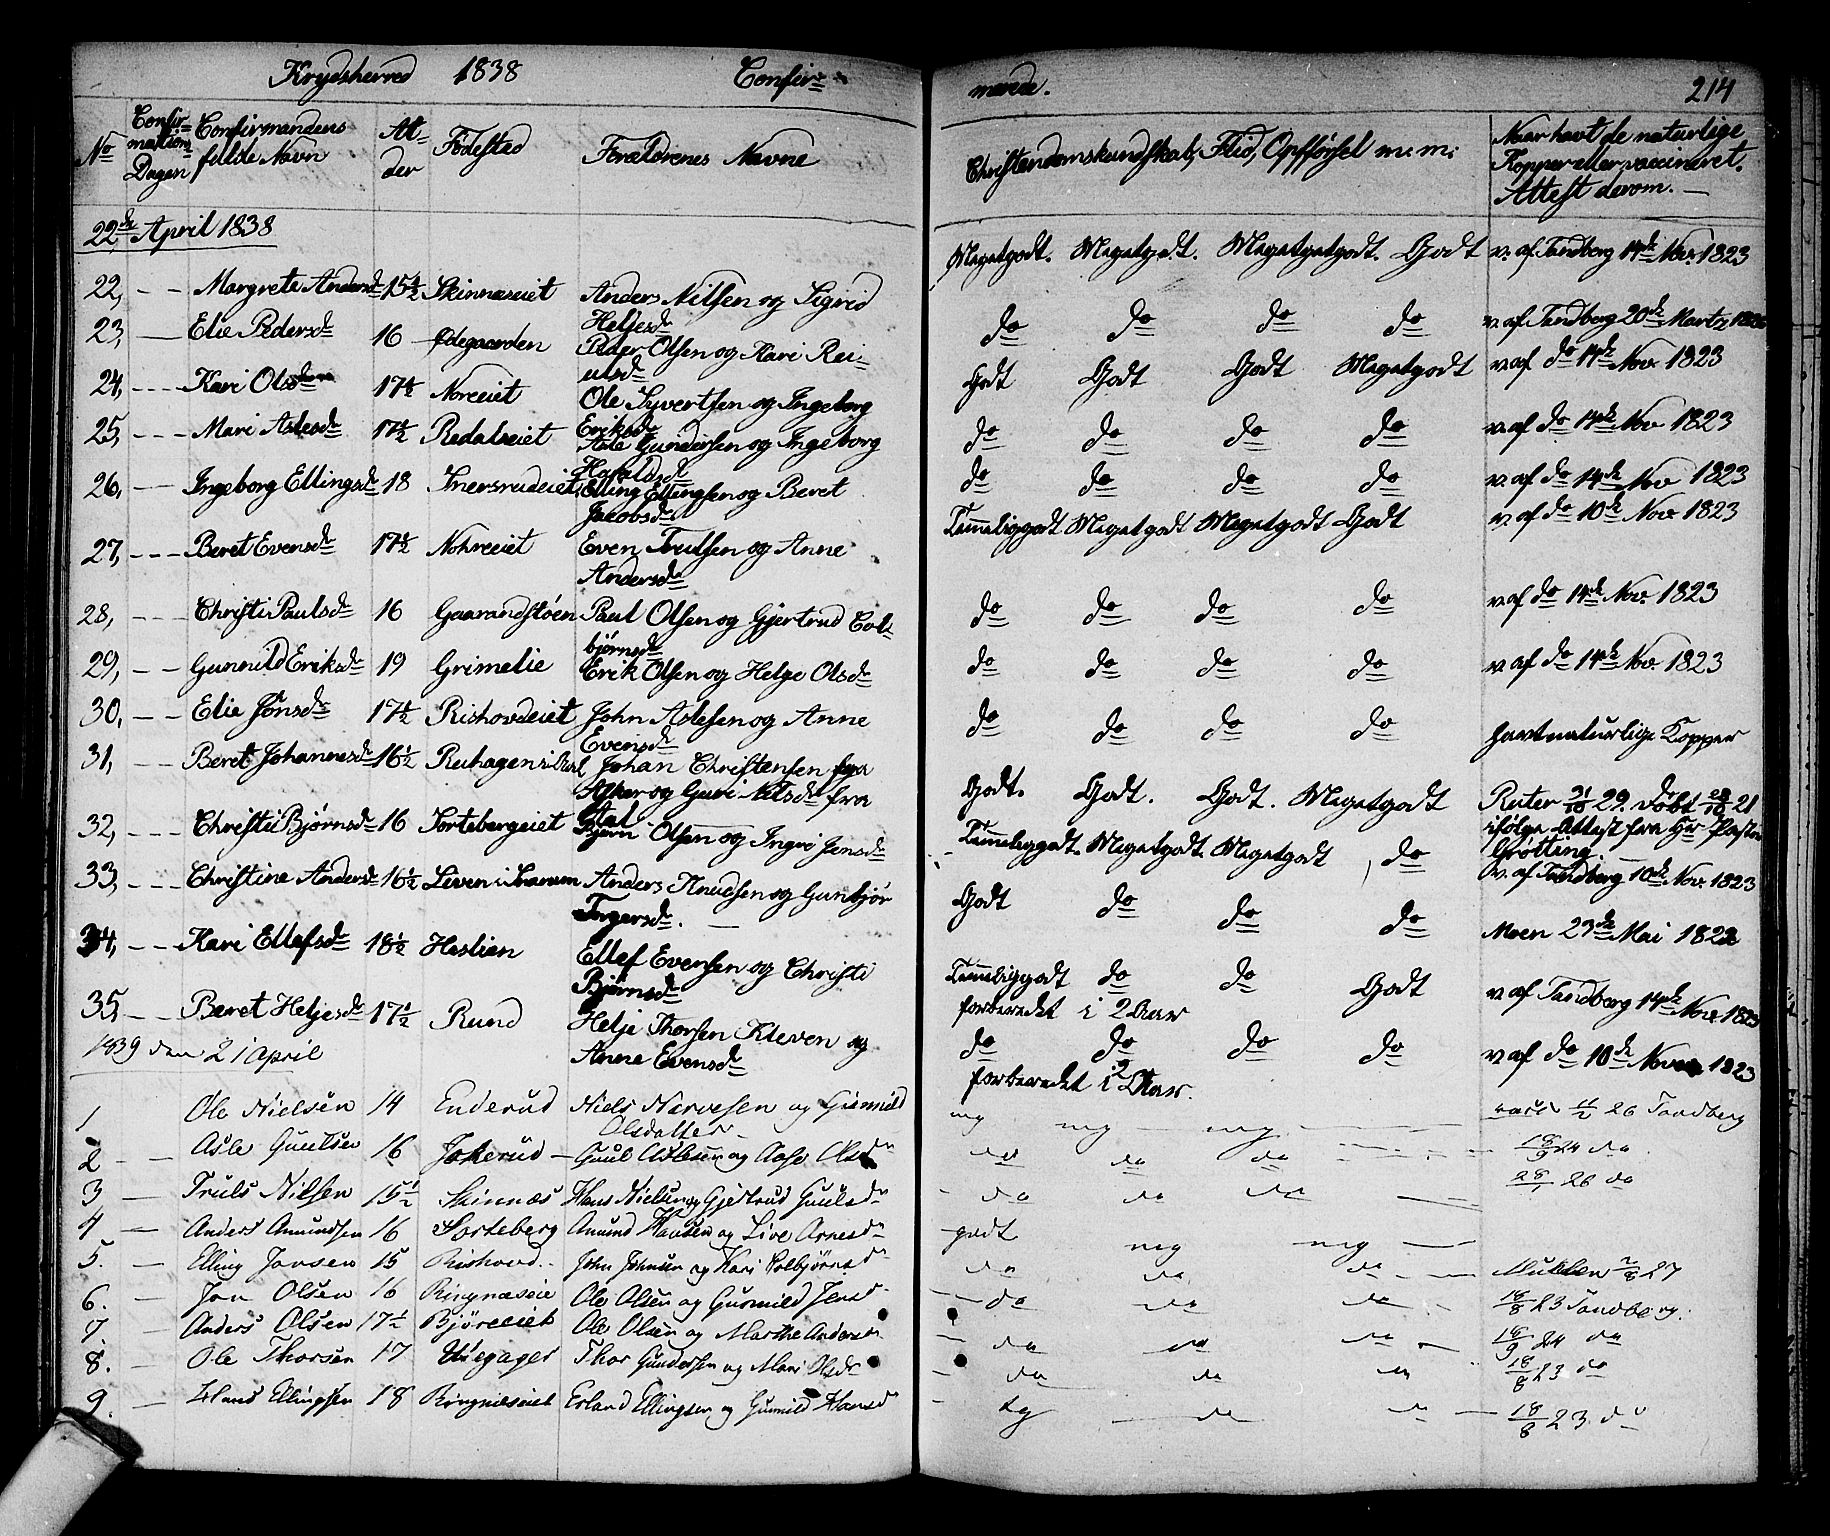 Krydsherred 1838 Confir=
No Confirmations Dagen Confirmandens fulde Navn Alder Födested Forældrenes Navne
22de April 1838
22, — — Margrete Andersd 15½ Skinnæseiet Anders Nilsen og Sigrid
Heljesd
23, — Elie Pedersd 16 Ödegaarden Peder Olsen og Kari Rei=
ulsd
24, - - - Kari Olsd 17½ Noreeiet Ole Syvertsen og Ingeborg
Eriksd
25, - - - Mari Aslesd 17½ Redalseiet Asle Gundersen og Ingeborg
Haraldsd
26, — Ingeborg Ellingsd 18 Elling Ellingsen og Beret
Jacobsd
27, - - - Beret Evensd 17½ Noreeiet Even Trulsen og Anne
Andersd
28, - - - Christi Paulsd 16 Gaarandstöen Paul Olsen og Gjertrud Col=
björnsd
29, — — Gunnild Eriksd 19 Grimelie Erik Olsen og Helge Olsd
30, — — Elie Jónsd 17½ Rishovdeiet John Aslesen og Anne
Evensd
31, — Beret Johannesd 16½ Ruhagen i Aal Johan Christensen fra
Aker og Guri Nilsd fra
Aal
32, - - - Christi Björnsd 16 Sorteberg­eiet Björn Olsen og Ingri Jensd
33, - - - Christine Andersd 16½ Anders Knudsen og Gunbjör
Ingersd. —
34, — — Kari Ellefsd 18½ Haslien Ellef Evensen og Christi
Björnsd
35, — — Beret Heljesd 17½ Rund Helje Thorsen Kleven og
Anne Evensd
1839 den 21 April
1 Ole Nielsen 14 Enderud Niels Narvesen og Gunnild
Olsdatter
2 — — Asle Guulsen 16 Jokerud — Guul Aslesen og Aase Olsd
3 — Truls Nilsen 15½ Skinnæs Hans Nielsen og Gjertrud Guulsd
4 — Anders Amundsen 16 Sorteberg Amund Hansen og Live Arnesd
5. — Elling Jonsen 15 Rishovd.. John Johnsen og Kari Colbjörnsd
6. — Jon Olsen 16 Ringnæseie Ole Olsen og Gunnild Jensd
7 — Anders Olsen 17½ Björeeiet Ole Olsen og Marthe Andersd
8. — Ole Thorsen 17 Thor Gundersen og Mari Olsd
9. — Erland Ellingsen 18 Ringnæseiet Erland Ellingsen og Gunnild Hansd
merede. 214
Christendomskundskab, Flid, Opförsel m: m: Naar havt de naturlige
Kopper eller vaccineret.
Attest derom. —
Megetgodt. Megetgodt. Megetgodt. Godt v. af Tandberg 14de Nov. 1823
do do do do v. af Tandberg 20de Marts
Godt Godt Godt Megetgodt v af do 14de Nov. 1823
do do do do v. af do 14de Nov 1823
do do do do v. af do 14de Nov 1823
Temmeliggodt Megetgodt Megetgodt Godt v. af do 10de Nov 1823
do do do do v af do 14de Nov. 1823
do do do do v af do 14de Nov. 1823
do do do do havt naturlige Kopper
Godt. Godt. Godt. Megetgodt Ruter 31/10 29. döbt 28/10 21
ifölge Attest fra Hr Pastor
Grötting. —
Temmeliggodt. Megetgodt. Megetgodt do v. af Tandberg 10de Nov. 1823
Godt do do do Moen 23de Mai 1822
Temmeliggodt do do Godt v af Tandberg 14de Nov. 1823
forberedt i 2 Aar
do do do do v af do 10de Nov 1823
forberedt i 2 Aar.
mg mg — mg 26 Tandberg
do do do 18/9 24 do
do do do 26 do
godt mg mg —
do do do - - - Mukken 2/8 27
do do do 18/8 23 Tandberg.
do do do - 18/9 24 do
do do do 18/8 23 do
tg do do 18/8 23. do